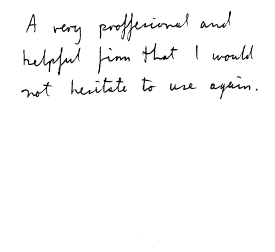 A very proffesional and
helpful firm that I would
not hesitate to use again.